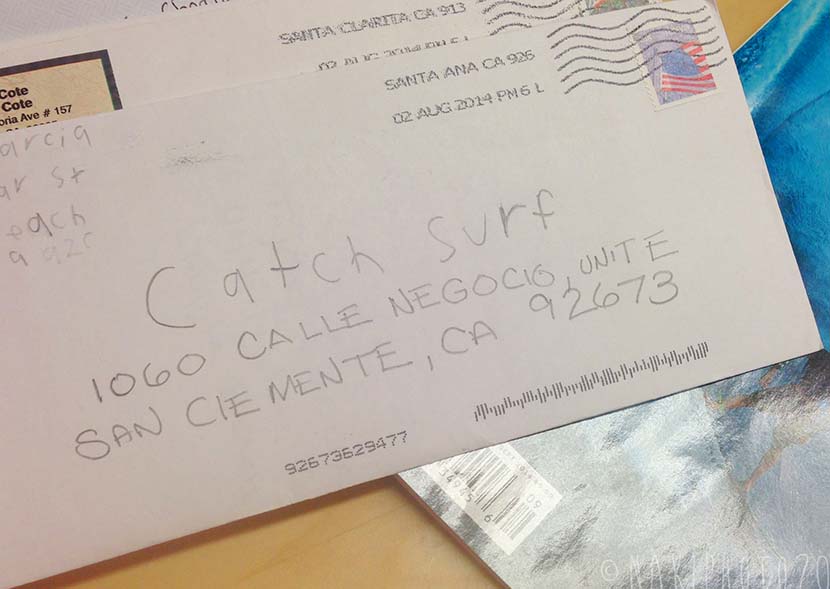 SANTA CLARITA CA 913
Cote
Cote
oria Ave # 157
SANTA ANA CA 926
02 AUG 2014 PM 6 L
arcia
ar st
each
a 920
Catch surf
1060 CALLE NEGOCIO, UNIT E
SAN CLEMENTE, CA 92673
92673629477